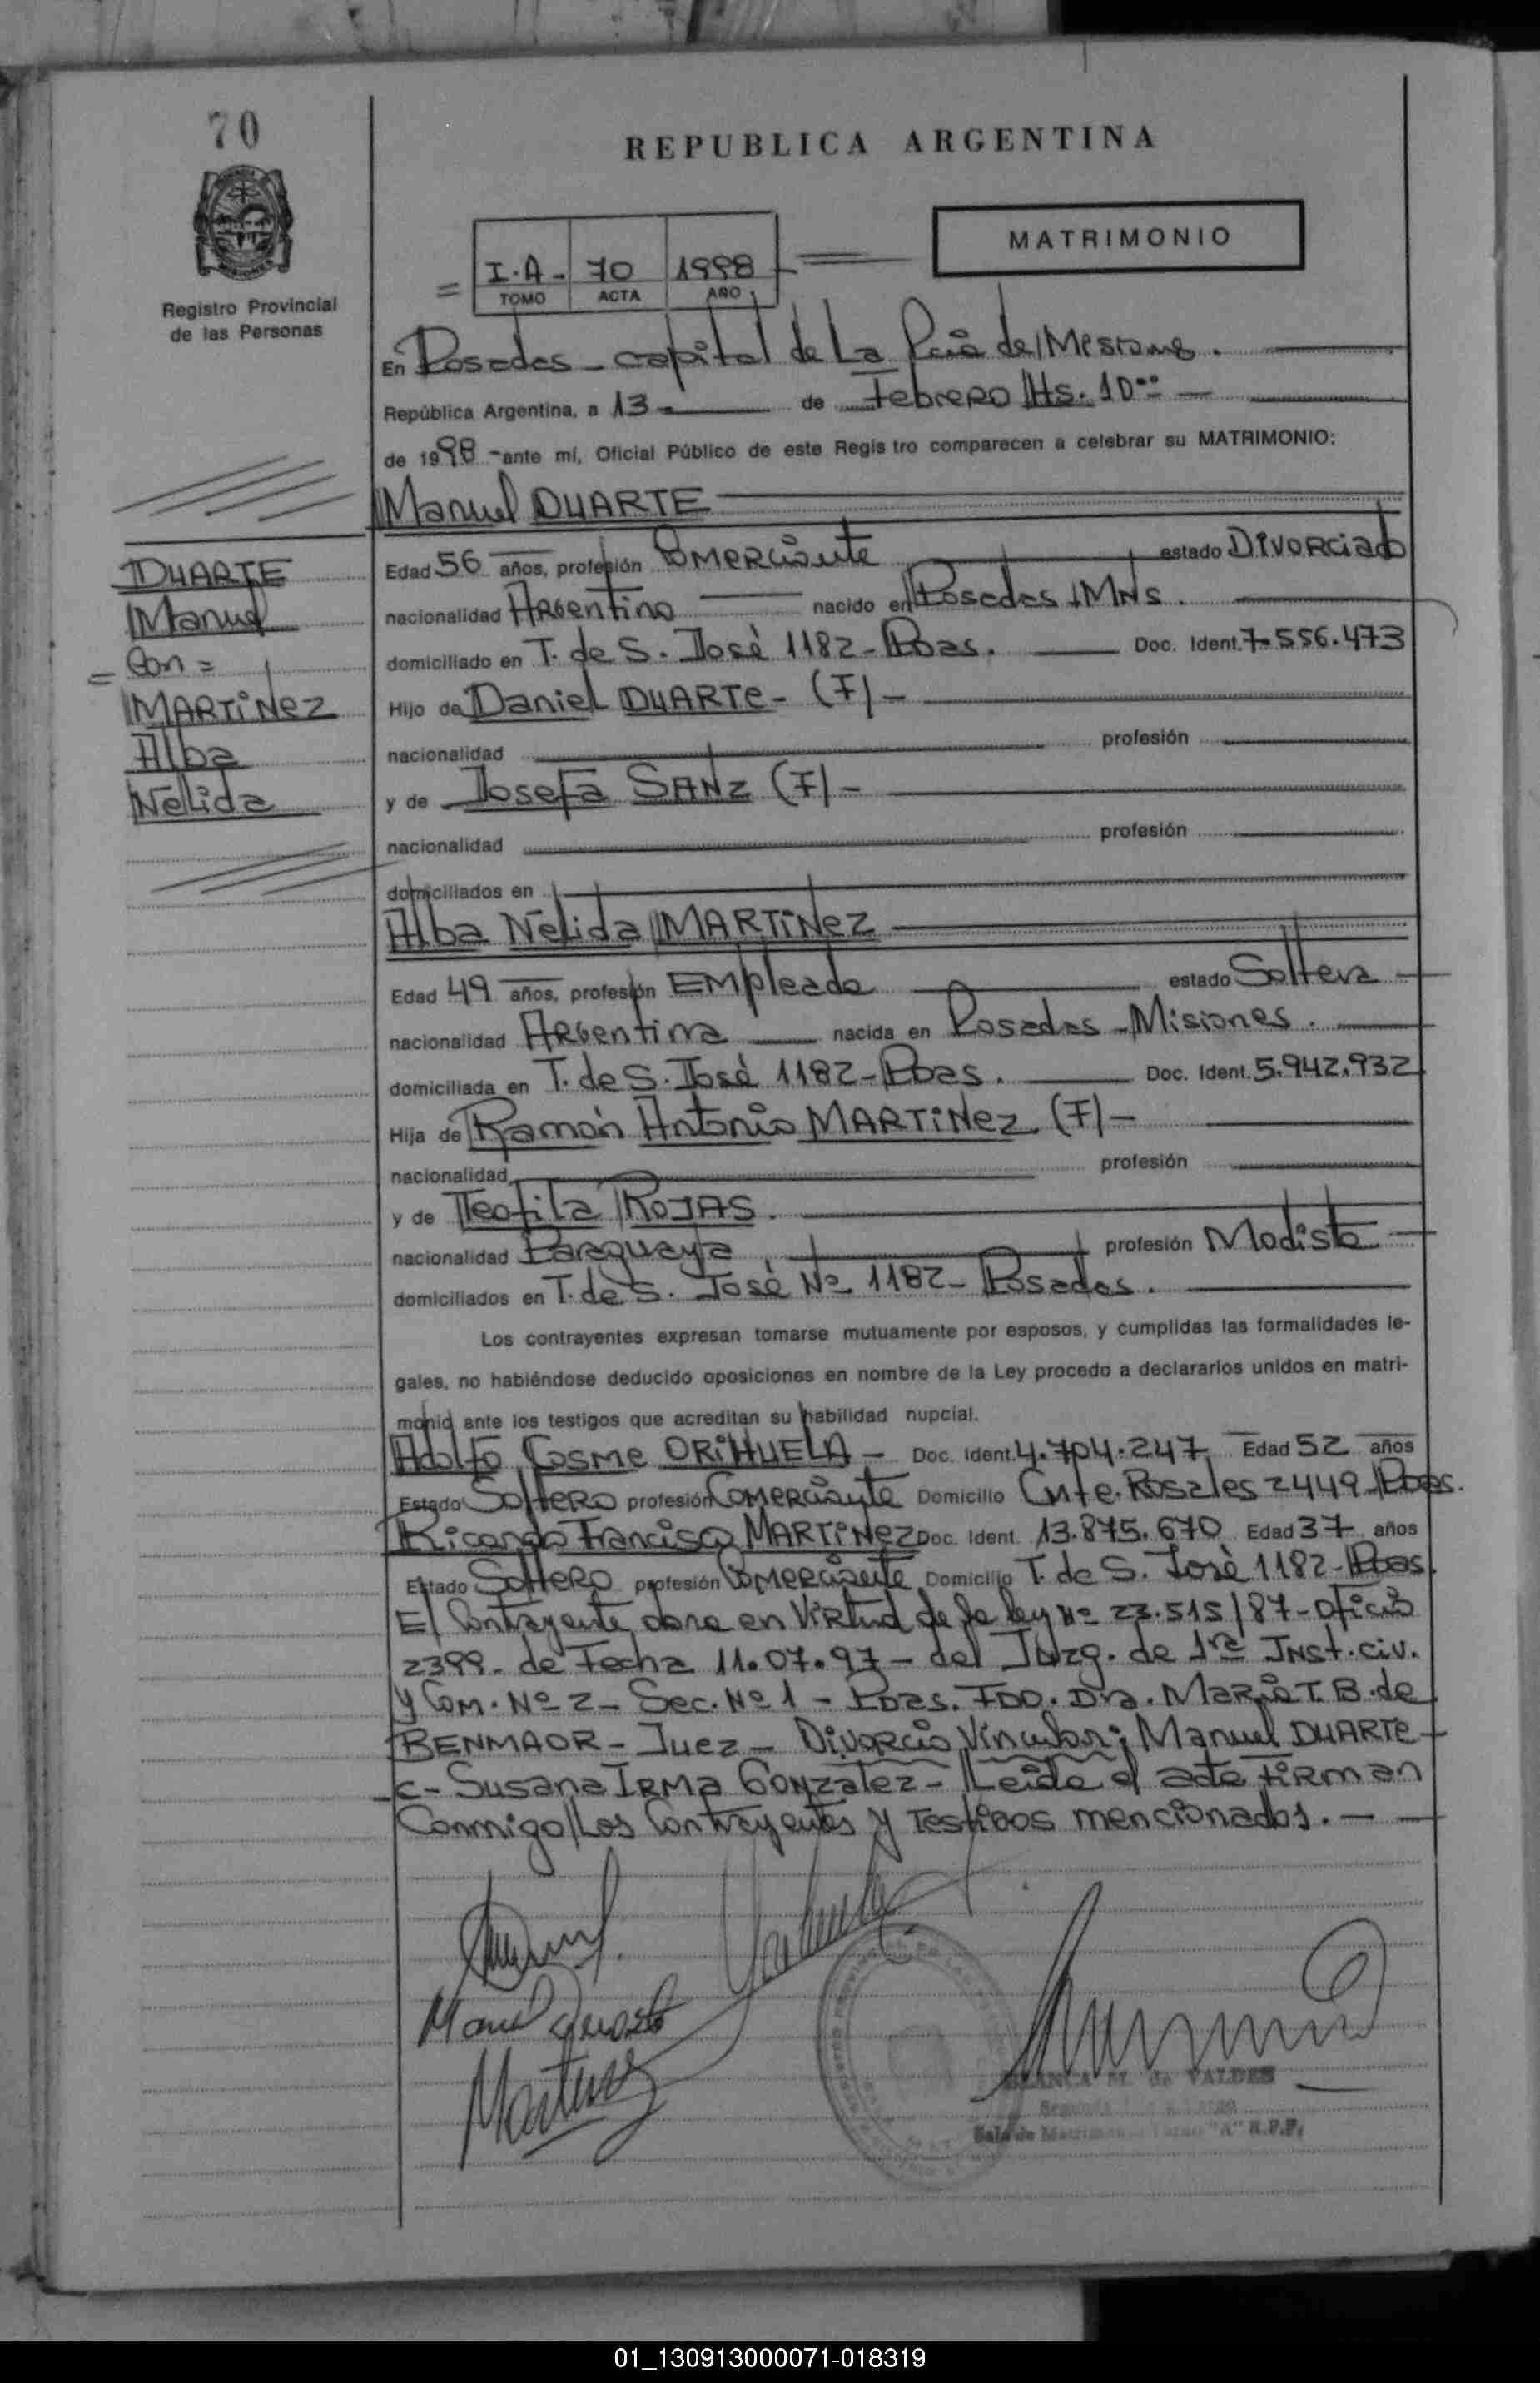 70
REPUBLICA ARGENTINA
MATRIMONIO
I.A- 70 1998
TOMO ACTA AÑO
Registro Provincial
de las Personas
En Posadas - capital de La Pcia de Misiones.
República Argentina, a 13 - de Febrero Hs. 10
de 1998 - ante mí, Oficial Público de este Registro comparecen a celebrar su MATRIMONIO:
Manuel DUARTE
Edad 56 años, profesión Comerciante estado Divorciado
nacionalidad Argentino nacido en Posadas Mns.
domiciliado en T. de S. José 1182 - Pdas. Doc. Ident. 7.556.473
Hijo de Daniel DUARTE - (F) -
nacionalidad profesión
y de Josefa SANZ (F) -
nacionalidad profesión
domiciliados en
DUARTE
Manuel
= Con =
MARTINEZ
Alba
Nelida
Alba Nelida MARTINEZ
Edad 49 años, profesión Empleada estado Soltera
nacionalidad Argentina nacida en Posadas - Misiones.
domiciliada en T. de S. José 1182 - Pdas. Doc. Ident. 5.942.932
Hija de Ramón Antonio MARTINEZ. (F) -
nacionalidad profesión
y de Teofila ROJAS.
nacionalidad Paraguaya profesión Modista
domiciliados en T. de S. José Nº 1182 - Posadas.
Los contrayentes expresan tomarse mutuamente por esposos, y cumplidas las formalidades le-
gales, no habiéndose deducido oposiciones en nombre de la Ley procedo a declararlos unidos en matri-
monio ante los testigos que acreditan su habilidad nupcial.
Adolfo Cosme ORIHUELA - Doc. Ident. 4.704.247 Edad 52 años
Estado Soltero profesión Comerciante Domicilio Cnte. Rosales 2449 - Pdas.
Ricardo Francisco MARTINEZ Doc. Ident. 13.875.670 Edad 37 años
Estado Soltero profesión Comerciante Domicilio T. de S. José 1182 - Pdas.
El Contrayente obra en Virtud de la ley Nº 23.515/87 - Oficio
2399 - de Fecha 11.07.97 - del Juzg. de 1ra Inst. Civ.
y Com. Nº 2 - Sec. Nº 1 - Pdas. FDO. Dra. María T. B. de
BENMAOR - Juez - Divorcio Vincular; Manuel DUARTE
c - Susana Irma Gonzalez - Leída el acta firman
Conmigo Los Contrayentes y Testigos mencionados. -
Manuel Duarte
Martinez
BLANCA M. de VALDES
Sala de "A" R.P.P.
01_130913000071-018319